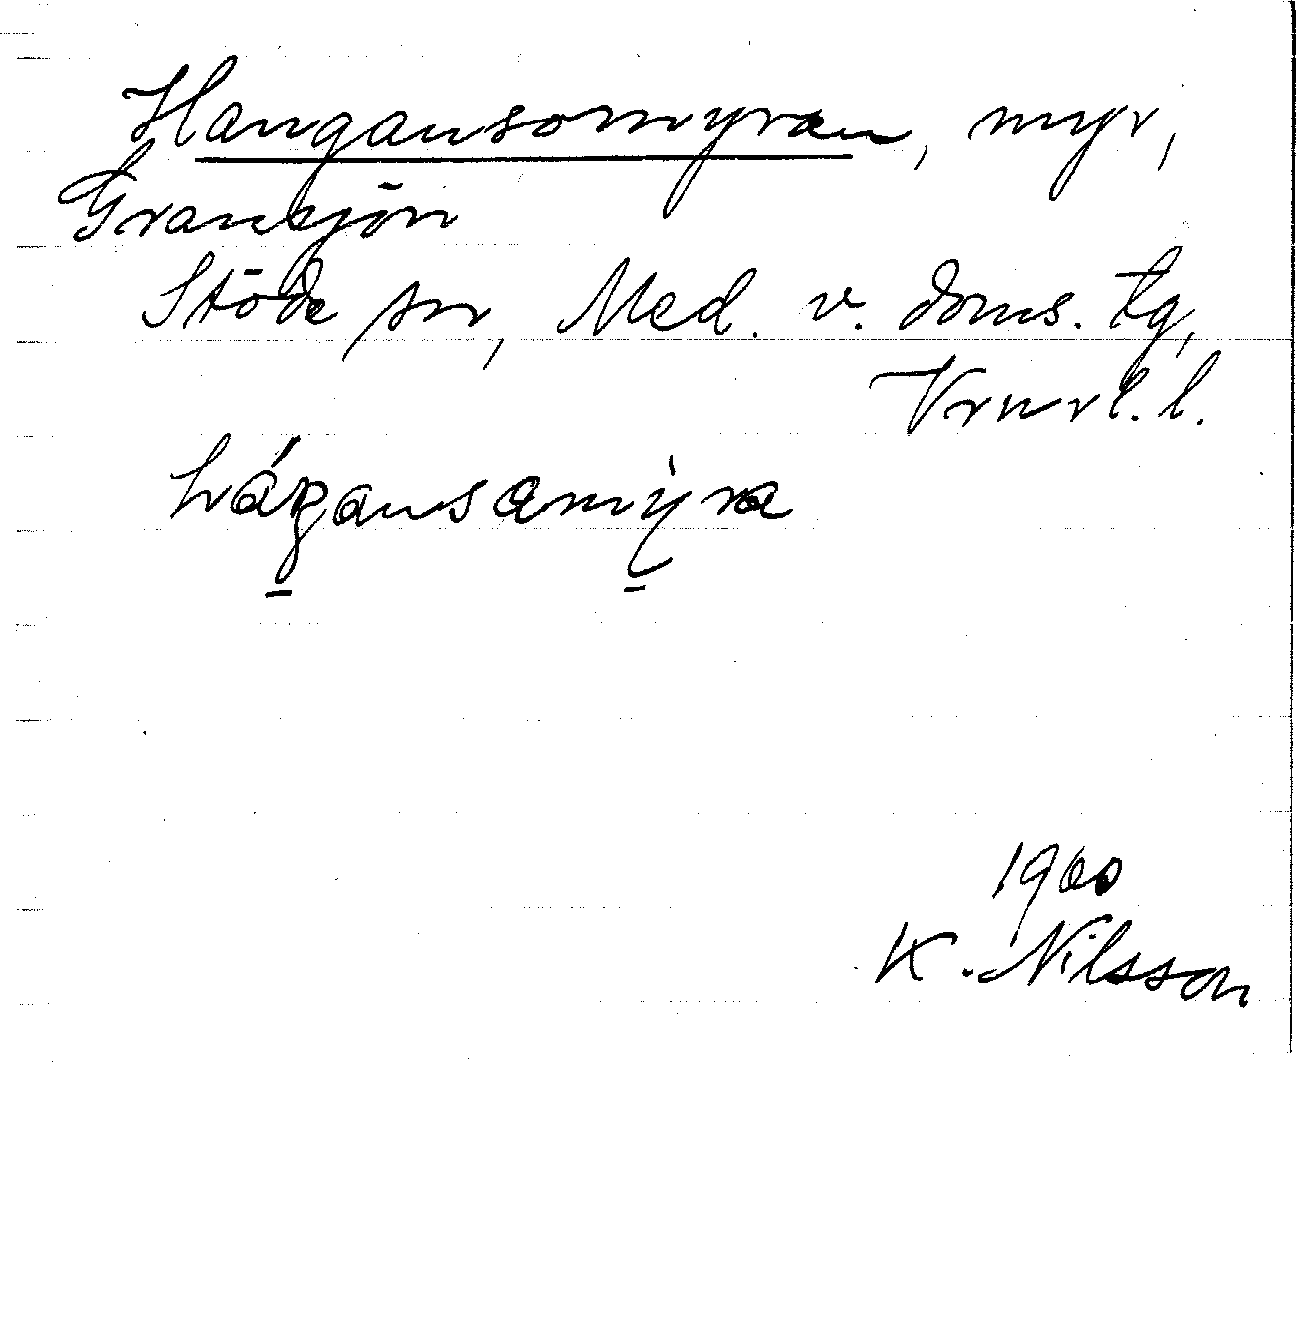 Hangansomyran, myr,
Gransjön
Stöde sn, Med. v. doms. tg,
Vrnrl. l.
hággansamỳra
1900
K. Nilsson